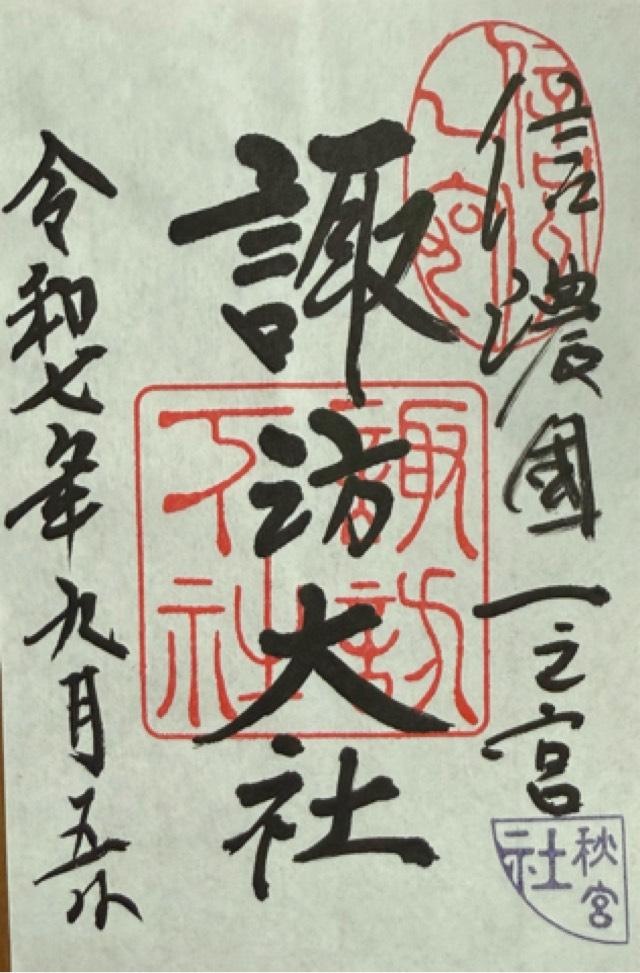 信濃國一之宮
諏訪大社
令和七年九月五日
諏訪
下社
秋宮
社